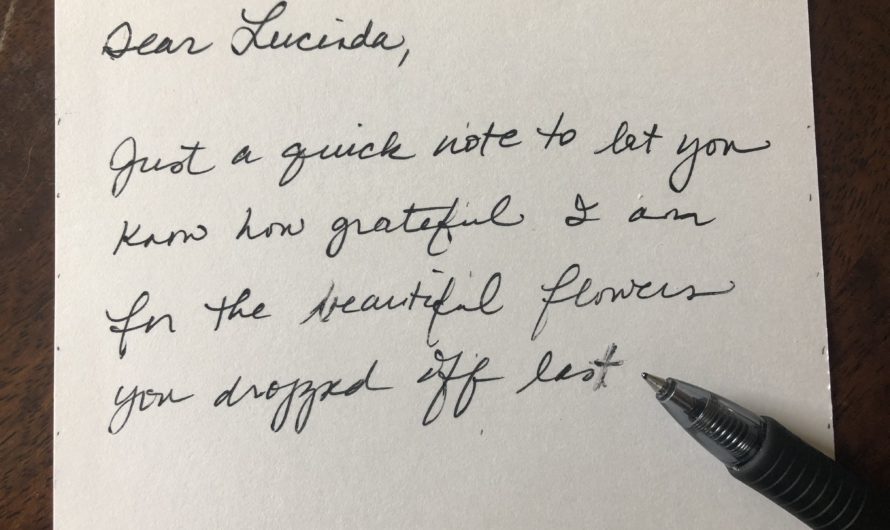 Dear Lucinda,
Just a quick note to let you
know how grateful I am
for the beautiful flowers
you dropped off last